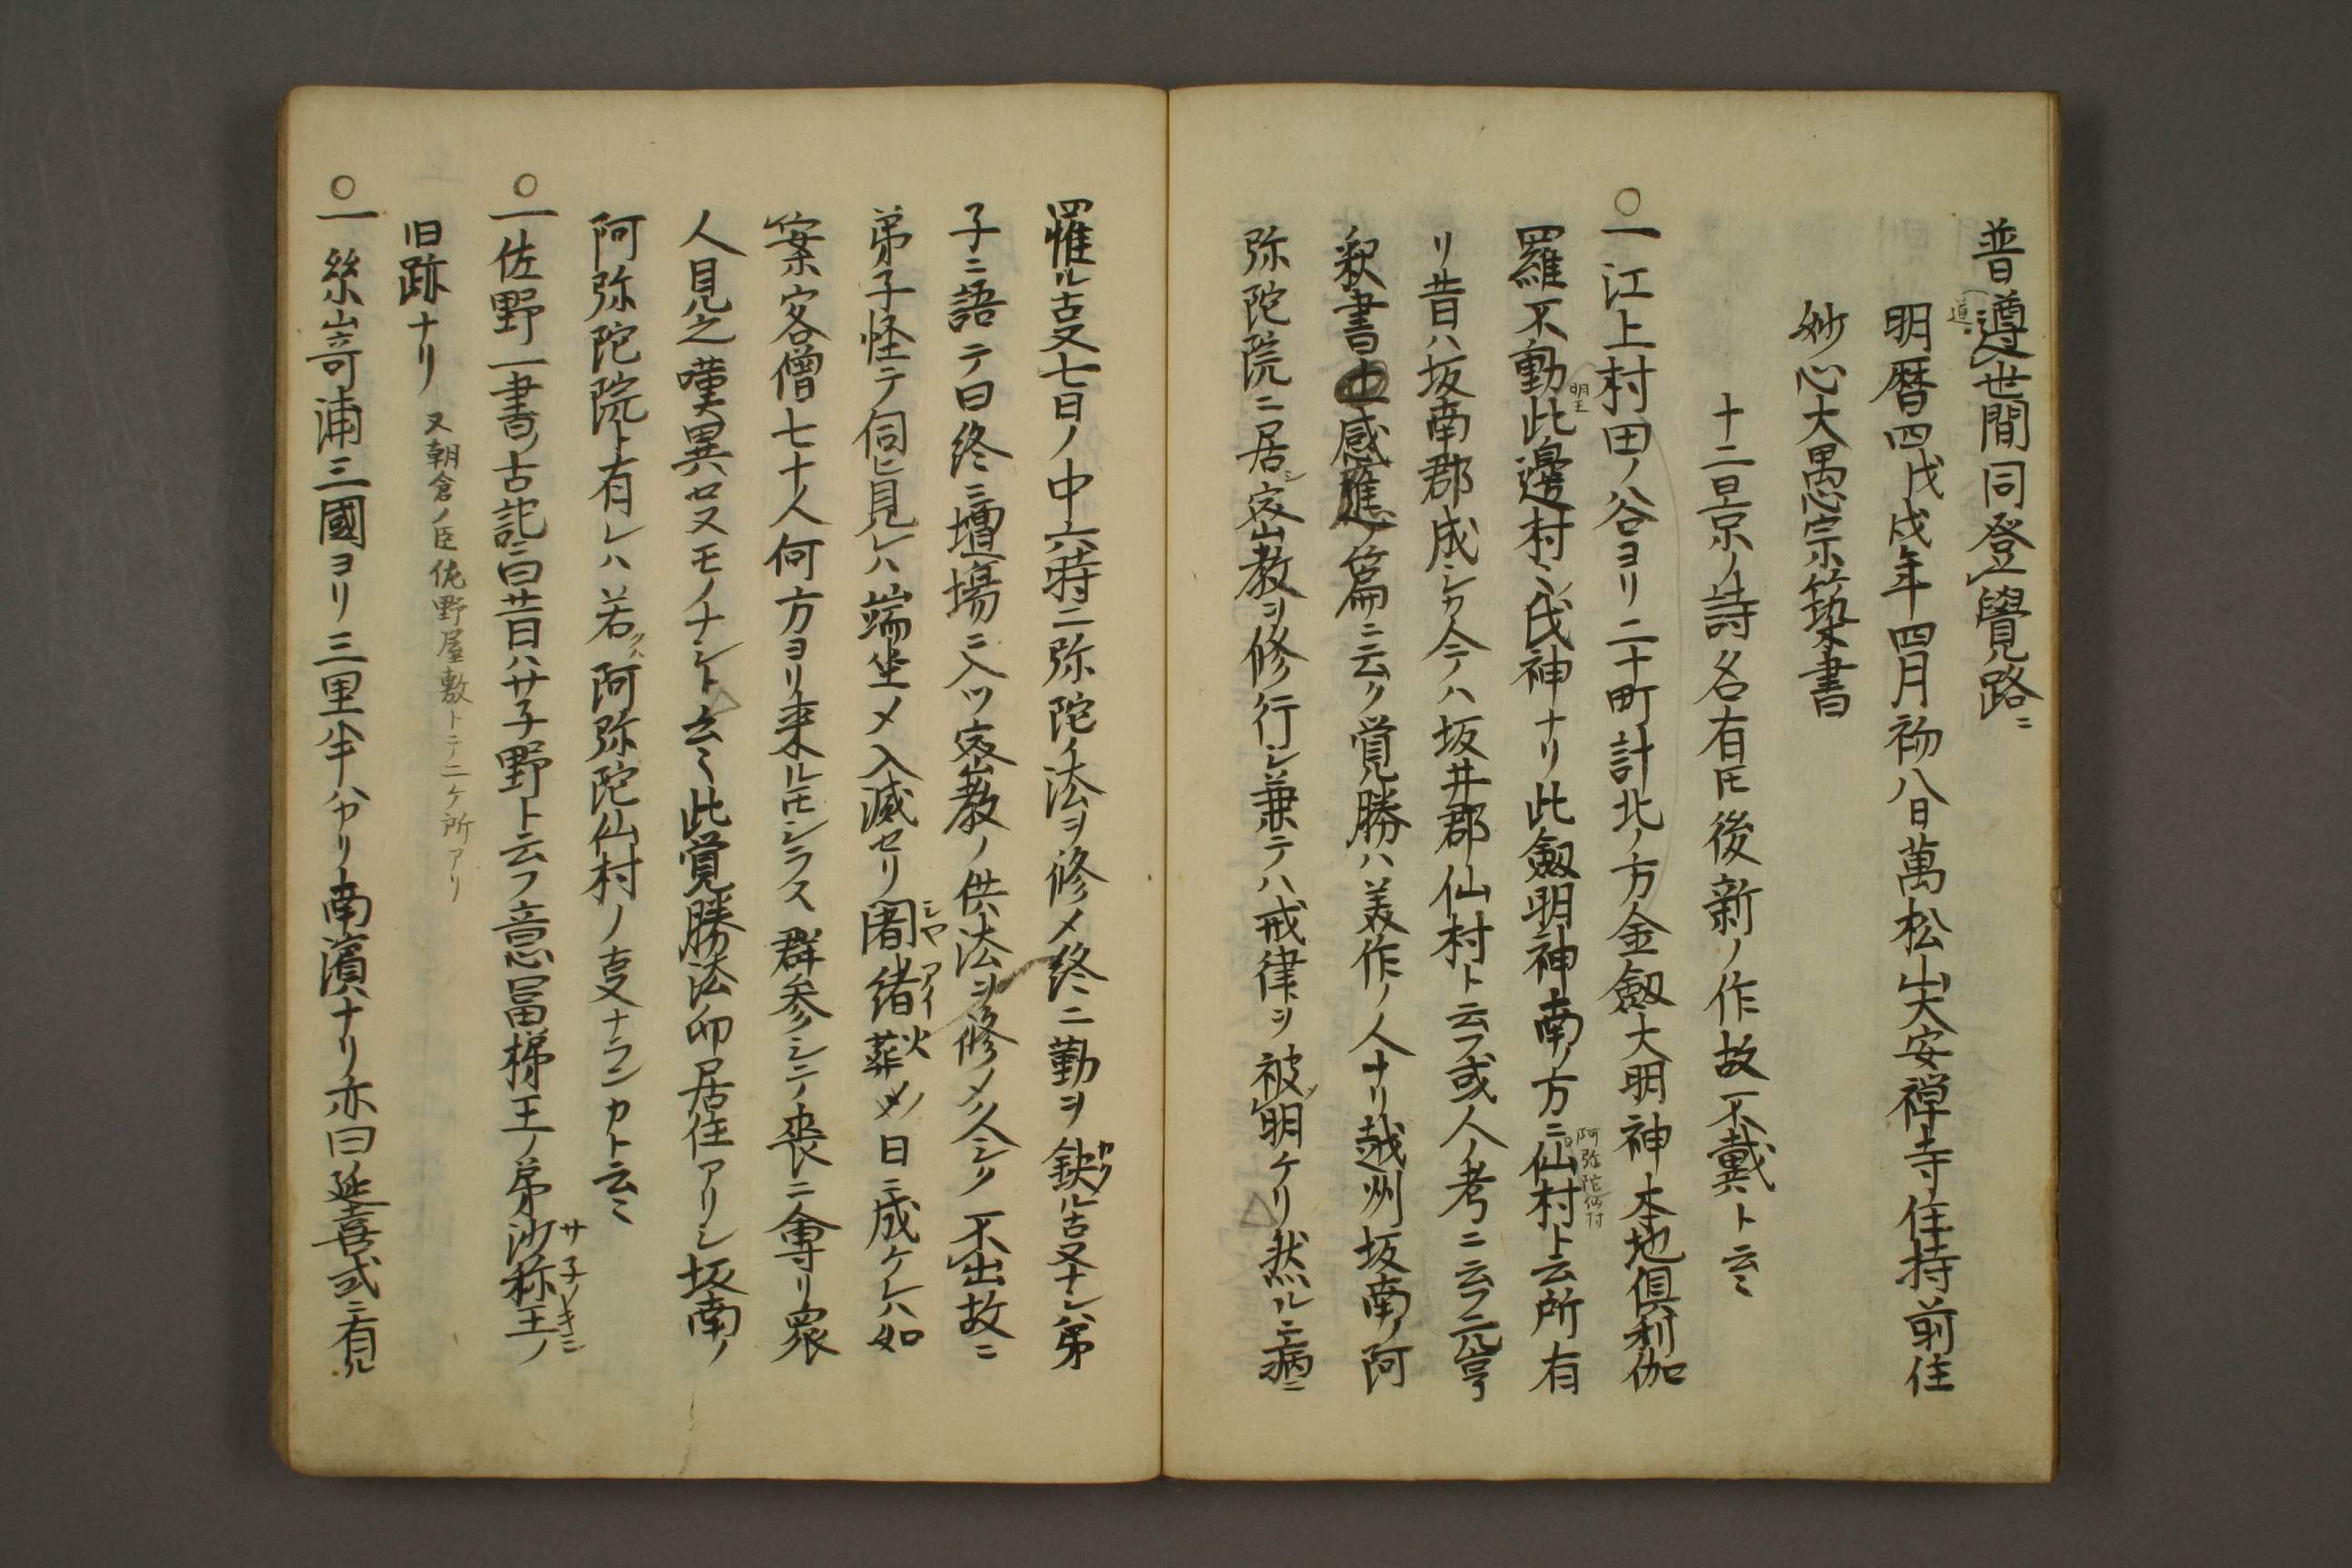 普遵世間同登覺路ニ
明暦四戊戌年四月初八日萬松山大安禅寺住持前住
妙心大愚宗築書
十二景ノ詩名有𪜈後新ノ作故不載ト云〻
一江上村田ノ谷ヨリ二十町計北ノ方金劔大明神本地倶利伽
羅不動此邊村〻氏神ナリ此劔明神南ノ方ニ仙村ト云所有
明王
阿弥陀仙村
リ昔ハ坂南郡成シカ今ハ坂井郡仙村ト云フ或人ノ考ニ云フ元亨
釈書感應ノ篇ニ云ク覚勝ハ美作ノ人ナリ越州坂南ノ阿
弥陀院ニ居シ密教ヲ修行シ兼テハ戒律ヲ被明ケリ然ルニ病ニ
罹ル古又七日ノ中六時ニ弥陀ノ法ヲ修メ終ニ勤ヲ缺ル古又ナシ弟
子ニ語テ曰終ニ壇場ニ入ツ密教ノ供法ヲ修メ久シク不出故ニ
弟子怪テ伺ヒ見レハ端坐メ入滅セリ闍維葬メノ日ニ成ケレハ如
案客僧七十人何方ヨリ来ル𪜈シラス群参シテ喪ニ會リ衆
人見之嘆異セヌモノナシト云〻此覚勝法印居住アリシ坂南ノ
阿弥陀院ト有レハ若クハ阿弥陀仙村ノ㕝ナランカト云〻
一佐野一書ノ古記曰昔ハサ子野ト云フ意冨梯王ノ弟沙祢王ノ
旧跡ナリ 又朝倉ノ臣佐野屋敷トテ二ケ所アリ
一絲嵜浦三國ヨリ三里半ハカリ南濱ナリ亦曰延喜式ニ有ル